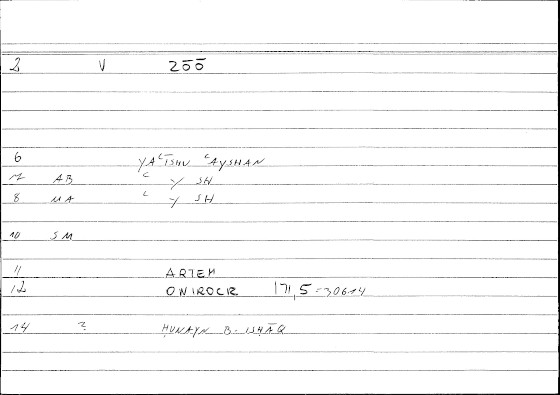 2 V 200
6 YAʿĪSHU ʿAYSHAN
7 AB ʿ Y SH
8 MA ʿ Y SH
10 SM
11 ARTEM
12 ONIROCR 171,5 = 30614
14 2 ḤUNAYN B. ISḤĀQ